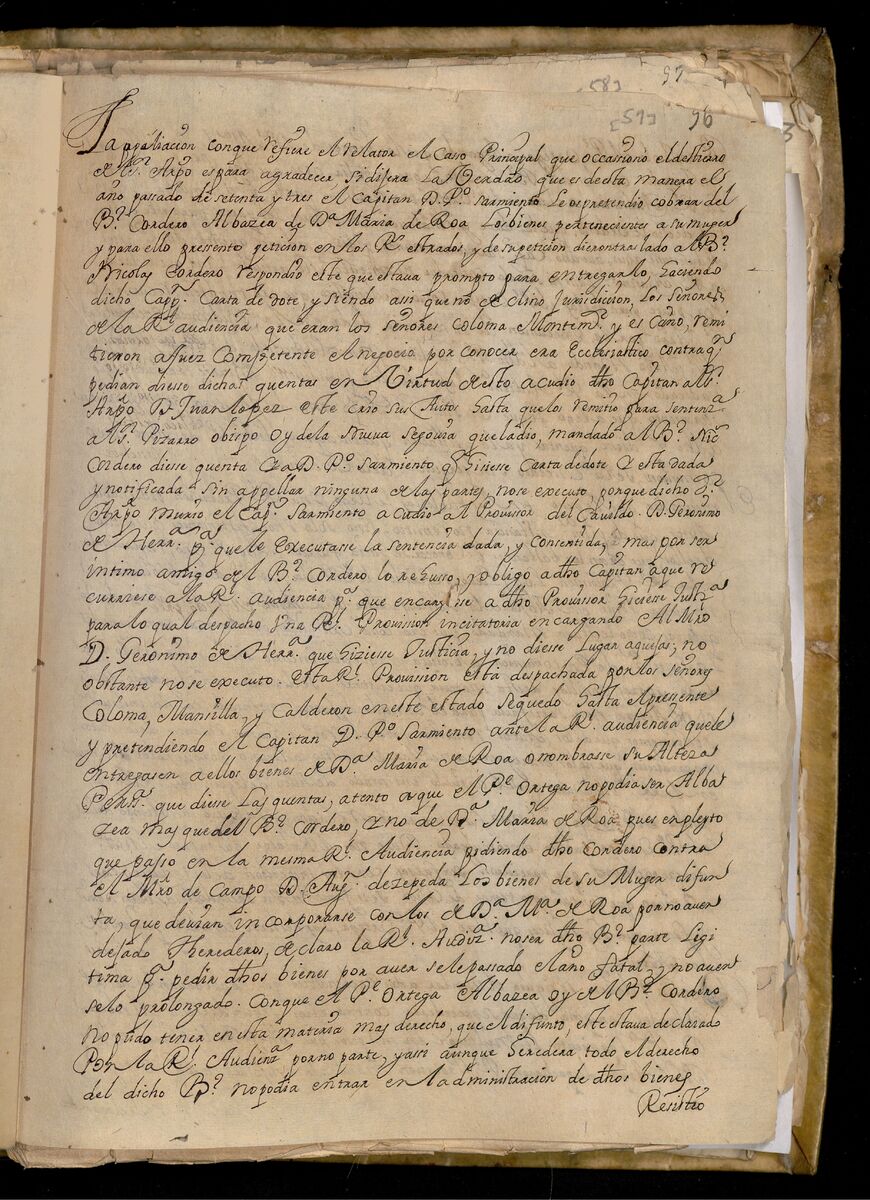 97
[58]
[59] 96
La appelliacion conque refiere el relator el caso Principal que occasiono el destierro
del Sr. Arzpo es para agradecer, si dijera la Verdad, que es desta manera el
año passado de setenta y tres el capitan D. Po. sarmiento Leos pretendio cobrar del
Br. Cordero Albazea de Da. Maria de Roa Los bienes pertenecientes a su muger
y para ello pressento peticion en los Rs. estrados, y de su peticion dieron traslado al Br.
Nicolas Cordero respondio este que estava prompto para entregarlo, haciendo
dicho Capn. Carta de dote, y siendo assi que no declino Jurisdicion, Los Señores
de la Rl. audiencia que eran los señores coloma Montemr. y escaño, remi
tieron a Juez competente el negocio por conocer era Ecclesiastico contra qn.
pedian diesse dichas quentas en Virtud desto acudio dho Capitan al Sr.
Arzpo D. Juan lopez este crio sus Autos hasta que los remitio para sentenza.
al Sr. Pizarro obispo oy de la nueva segovia que la dio, mandado al Br. Nic.
Cordero diesse quenta y a D. Po. sarmiento q hisiesse carta de dote y esta dada
y notificada sin appellar ninguna de las partes, no se executo, porque dicho Sr.
Arzpo murio el Capn. sarmiento acudio al Provisor del Cavildo. D. Geronimo
de Herra. pa. que le executasse la sentencia dada, y consentida, mas por ser
intimo amigo del Br. Cordero lo rehusso, y obligo a dho Capitan a que re
curriese a la Rl. audiencia pa. que encargasse a dho Provissor hiciese Justza.
para lo qual despacho una Rl. Provission incitatoria encargando Al Mro
D. Geronimo de Herra. que hiziesse Justicia, y no diesse Lugar a quejas, no
obstante no se executo. Esta Rl. Provission está despachada por los señores
Coloma, Mansilla, y Calderon en este estado se quedo hasta el pressente
y pretendiendo el Capitan D. Po. sarmiento ante la Rl. audiencia que le
entregasen aellos bienes de Da. Maria de Roa o nombrasse su Alteza
Persa. que diese Las quentas, atento a que el Pe. Ortega no podia ser Alba
zea mas que del Br. cordero, y no de Da. Maria de Roa pues en pleyto
que passo en la mesma Rl. Audiencia pidiendo dho cordero contra
el Mro de campo D. Augn. de zepeda Los bienes de su Muger difun
ta, que devian incorporarse con los de Da. Ma. de Roa por no aver
dejado Therederos, declaro la Rl. Audiza. no ser dho Br. parte Legi
tima pa. pedir dhos bienes por aver sele passado el año fatal, y no aver
selo prolongado. conque el Pe. Ortega Albazea oy del Br. Cordero
no pudo tener en esta materia mas derecho, que el difunto, este estava declarado
Por la Rl. Audienza. por no parte, y assi aunque heredera todo el derecho
del dicho Br. no podia entrar en la administracion de dhos bienes
Resistio